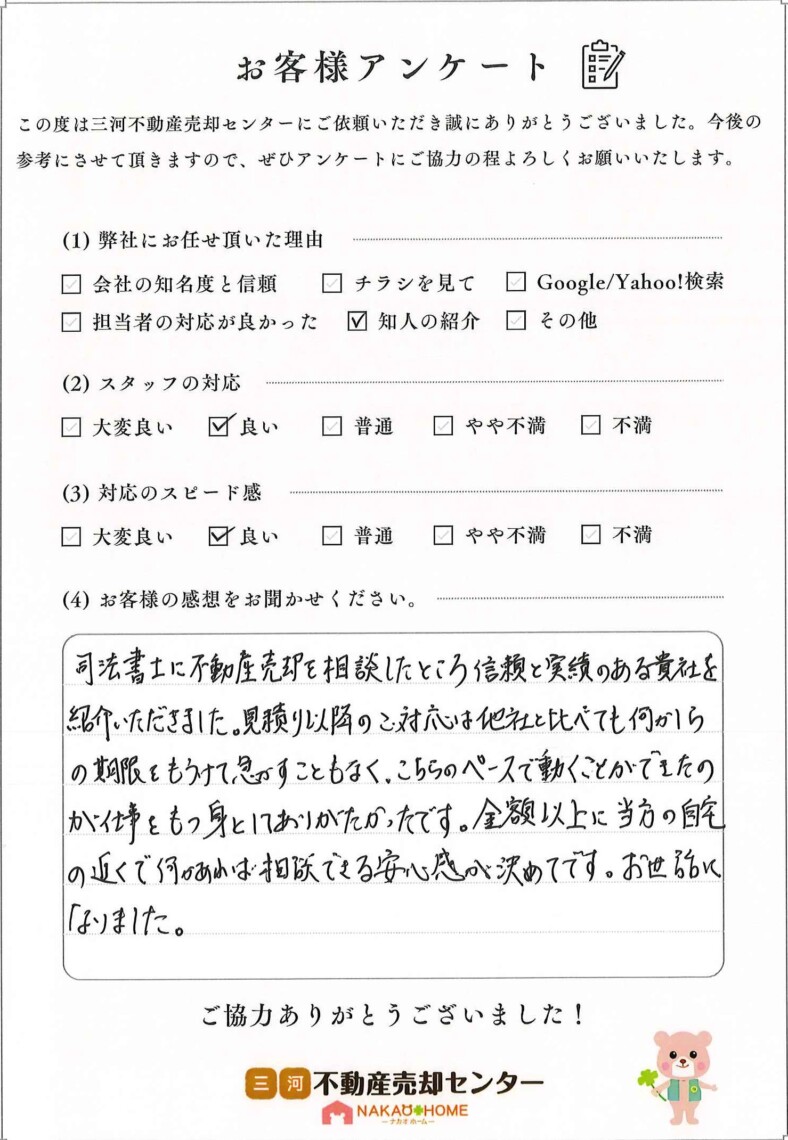 お客様アンケート
この度は三河不動産売却センターにご依頼いただき誠にありがとうございました。今後の
参考にさせて頂きますので、ぜひアンケートにご協力の程よろしくお願いいたします。
(1) 弊社にお任せ頂いた理由
会社の知名度と信頼 チラシを見て Google/Yahoo!検索
担当者の対応が良かった 知人の紹介 その他
(2) スタッフの対応
大変良い 良い 普通 やや不満 不満
(3) 対応のスピード感
大変良い 良い 普通 やや不満 不満
(4) お客様の感想をお聞かせください。
司法書士に不動産売却を相談したところ信頼と実績のある貴社を
紹介いただきました。見積り以降のご対応は他社と比べても何かしら
の期限をもうけて急かすこともなく、こちらのペースで動くことができたの
が仕事をもつ身としてありがたかったです。金額以上に当方の自宅
の近くで何かあれば相談できる安心感が決めてです。お世話に
なりました。
ご協力ありがとうございました！
三河不動産売却センター
NAKAO HOME
ーナカオホームー